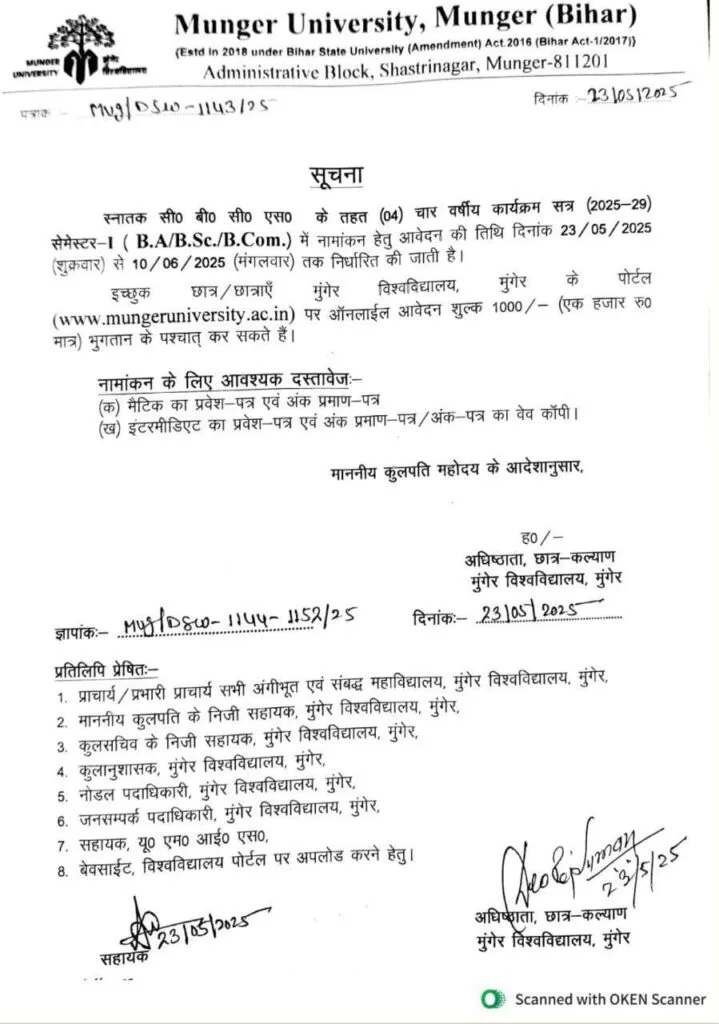 Munger University, Munger (Bihar)
{Estd in 2018 under Bihar State University (Amendment) Act.2016 (Bihar Act-1/2017)}
Administrative Block, Shastrinagar, Munger-811201
MUNGER
UNIVERSITY
मुंगेर
विश्वविद्यालय
पत्रांक :- Mug/DSW-1143/25
दिनांक :- 23/05/2025
सूचना
स्नातक सी0 बी0 सी0 एस0 के तहत (04) चार वर्षीय कार्यक्रम सत्र (2025-29)
सेमेस्टर-I ( B.A/B.Sc./B.Com.) में नामांकन हेतु आवेदन की तिथि दिनांक 23/05/2025
(शुक्रवार) से 10/06/2025 (मंगलवार) तक निर्धारित की जाती है।
इच्छुक छात्र/छात्राएँ मुंगेर विश्वविद्यालय, मुंगेर के पोर्टल
(www.mungeruniversity.ac.in) पर ऑनलाईल आवेदन शुल्क 1000/- (एक हजार रु0
मात्र) भुगतान के पश्चात् कर सकते हैं।
नामांकन के लिए आवश्यक दस्तावेज:-
(क) मैटिक का प्रवेश-पत्र एवं अंक प्रमाण-पत्र
(ख) इंटरमीडिएट का प्रवेश-पत्र एवं अंक प्रमाण-पत्र/अंक-पत्र का वेव कॉपी।
माननीय कुलपति महोदय के आदेशानुसार,
ह0/-
अधिष्ठाता, छात्र-कल्याण
मुंगेर विश्वविद्यालय, मुंगेर
ज्ञापांक:- Mug/DSW-1144-1152/25
दिनांक:- 23/05/2025
प्रतिलिपि प्रेषित:-
1. प्राचार्य/प्रभारी प्राचार्य सभी अंगीभूत एवं संबद्ध महाविद्यालय, मुंगेर विश्वविद्यालय, मुंगेर,
2. माननीय कुलपति के निजी सहायक, मुंगेर विश्वविद्यालय, मुंगेर,
3. कुलसचिव के निजी सहायक, मुंगेर विश्वविद्यालय, मुंगेर,
4. कुलानुशासक, मुंगेर विश्वविद्यालय, मुंगेर,
5. नोडल पदाधिकारी, मुंगेर विश्वविद्यालय, मुंगेर,
6. जनसम्पर्क पदाधिकारी, मुंगेर विश्वविद्यालय, मुंगेर,
7. सहायक, यू0 एम0 आई0 एस0,
8. बेवसाईट, विश्वविद्यालय पोर्टल पर अपलोड करने हेतु।
23/5/25
अधिष्ठाता, छात्र-कल्याण
मुंगेर विश्वविद्यालय, मुंगेर
23/05/2025
सहायक
Scanned with OKEN Scanner